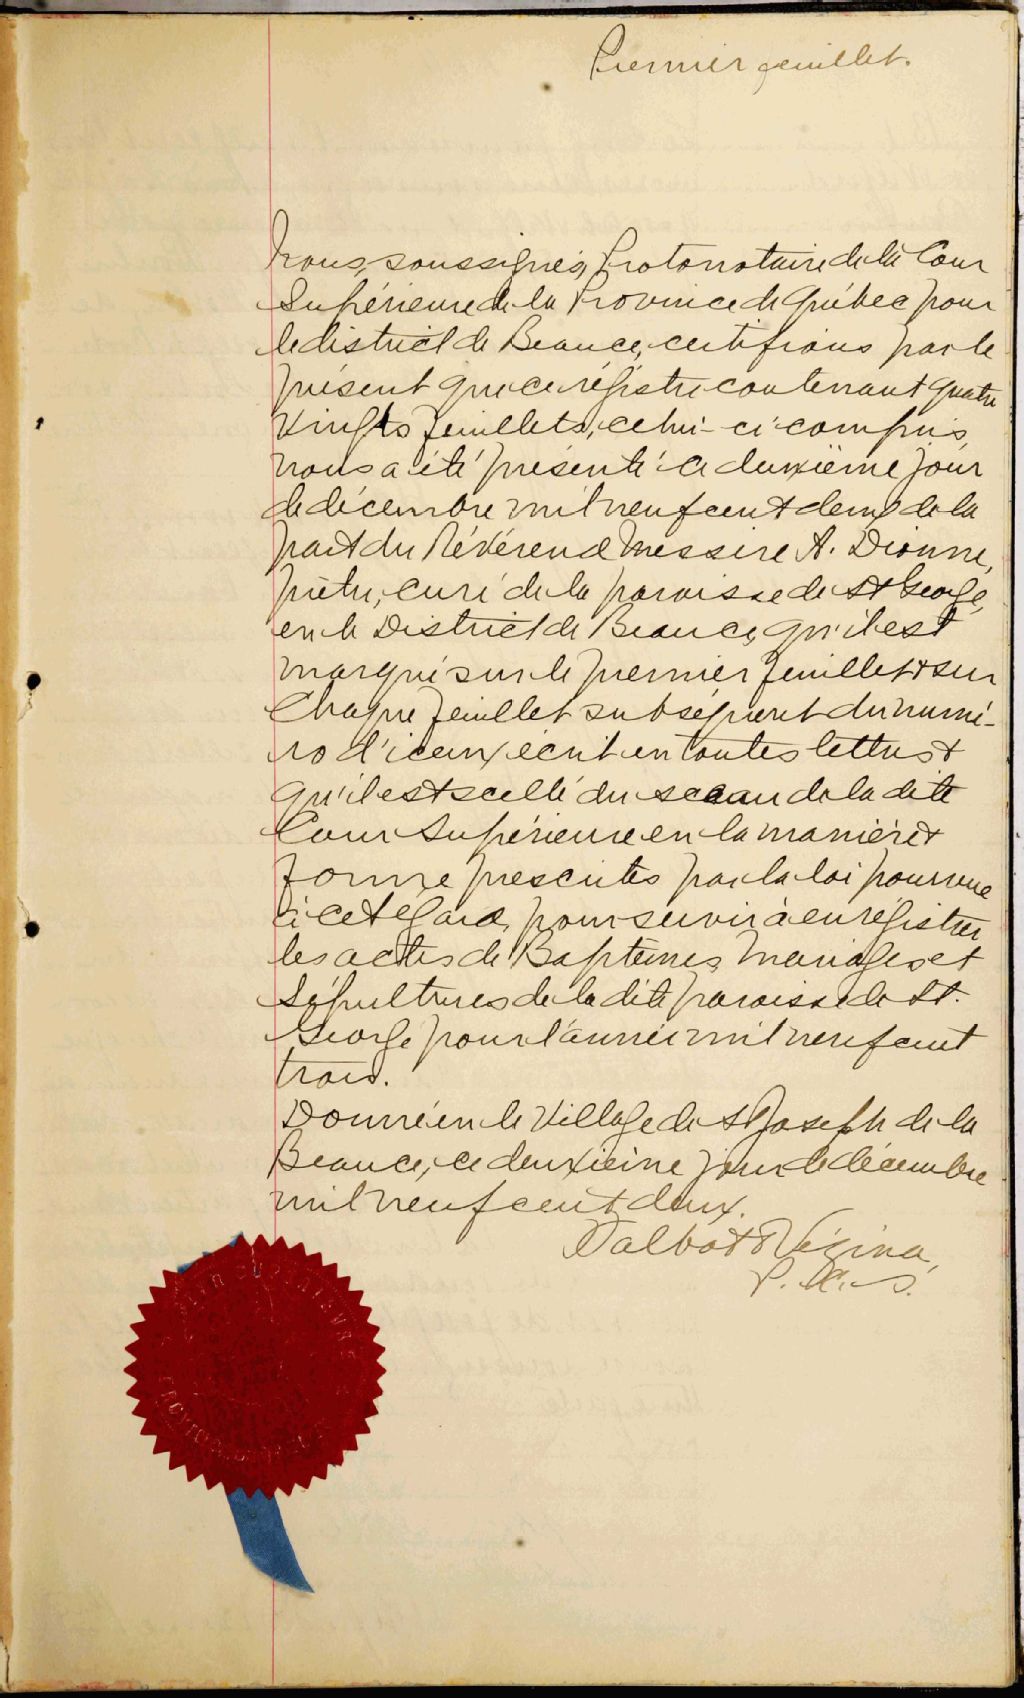 Premier feuillet.
Nous, soussignés, Protonotaire de la Cour
Supérieure de la Province de Québec pour
le district de Beauce, certifions par le
présent que ce régistre contenant quatre
vingts feuillets, celui-ci compris,
nous a été présenté ce deuxième jour
de décembre mil neuf cent deux de la
part du Révérend Messire A. Dionne,
prêtre, curé de la paroisse de St George,
en le District de Beauce, qu'il est
marqué sur le premier feuillet & sur
chaque feuillet subséquent du numé-
ro d'iceux écrit en toutes lettres &
qu'il est scellé du sceau de la dite
Cour Supérieure en la manière &
forme prescrites par la loi pourvue
à cet égard, pour servir à enrégistrer
les actes de Baptêmes, Mariages et
Sépultures de la dite paroisse de St.
George pour l'année mil neuf cent
trois.
Donné en le Village de St Joseph de la
Beauce, ce deuxième jour de décembre
mil neuf cent deux.
Talbot & Vézina,
P. C. S.